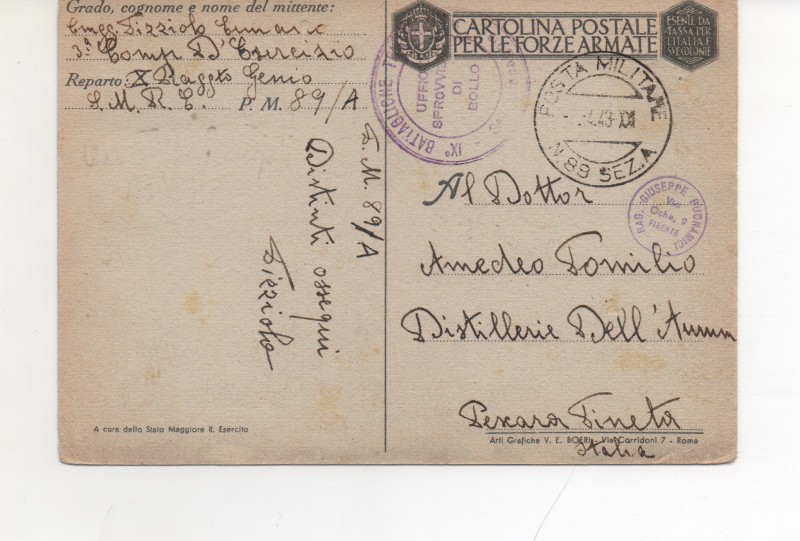 Grado, cognome e nome del mittente:
3ª Comp D'Esercizio
Reparto: X Raggto Genio
S. M. R. E. P. M. 89/A
P. M. 89/A
Distinti ossequi
Tizziolo
A cura dello Stato Maggiore R. Esercito
CARTOLINA POSTALE
PER LE FORZE ARMATE
ESENTE DA
TASSA PER
L'ITALIA E
COLONIE
IX° BATTAGLIONE
UFFICIO
SPROVVISTO
DI
BOLLO
POSTA MILITARE
43-XXI
N. 89 SEZ. A
RAG. GIUSEPPE BUONAMICI
Via
Oche, 9
FIRENZE
Al Dottor
Amedeo Pomilio
Distillerie Dell'Aurum
Pescara Pineta
Italia
Arti Grafiche V. E. BOERI - Via Corridoni 7 - Roma